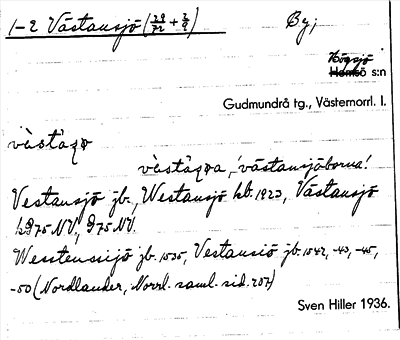 1-2 Västansjö (29/72 + 2/9) By;
Högsjö
Hemsö s:n
Gudmundrå tg., Västernorrl. l.
västaʒø
västaʒøa, 'västansjöborna'.
Vestansjö jb., Westansjö kb. 1923, Västansjö
kD75 NV, D75 NV.
Wesstenssijö jb. 1535, Vestansiö jb. 1542, -43, -45,
-50 (Nordlander, Norrl. saml. sid. 207)
Sven Hiller 1936.